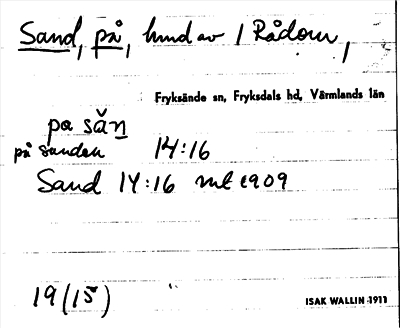 Sand, på, hmd av 1 Rådom,
Fryksände sn, Fryksdals hd, Värmlands län
pa sǎn
på sanden 14:16
Sand 14:16 mt 1909
19(15)
ISAK WALLIN 1911